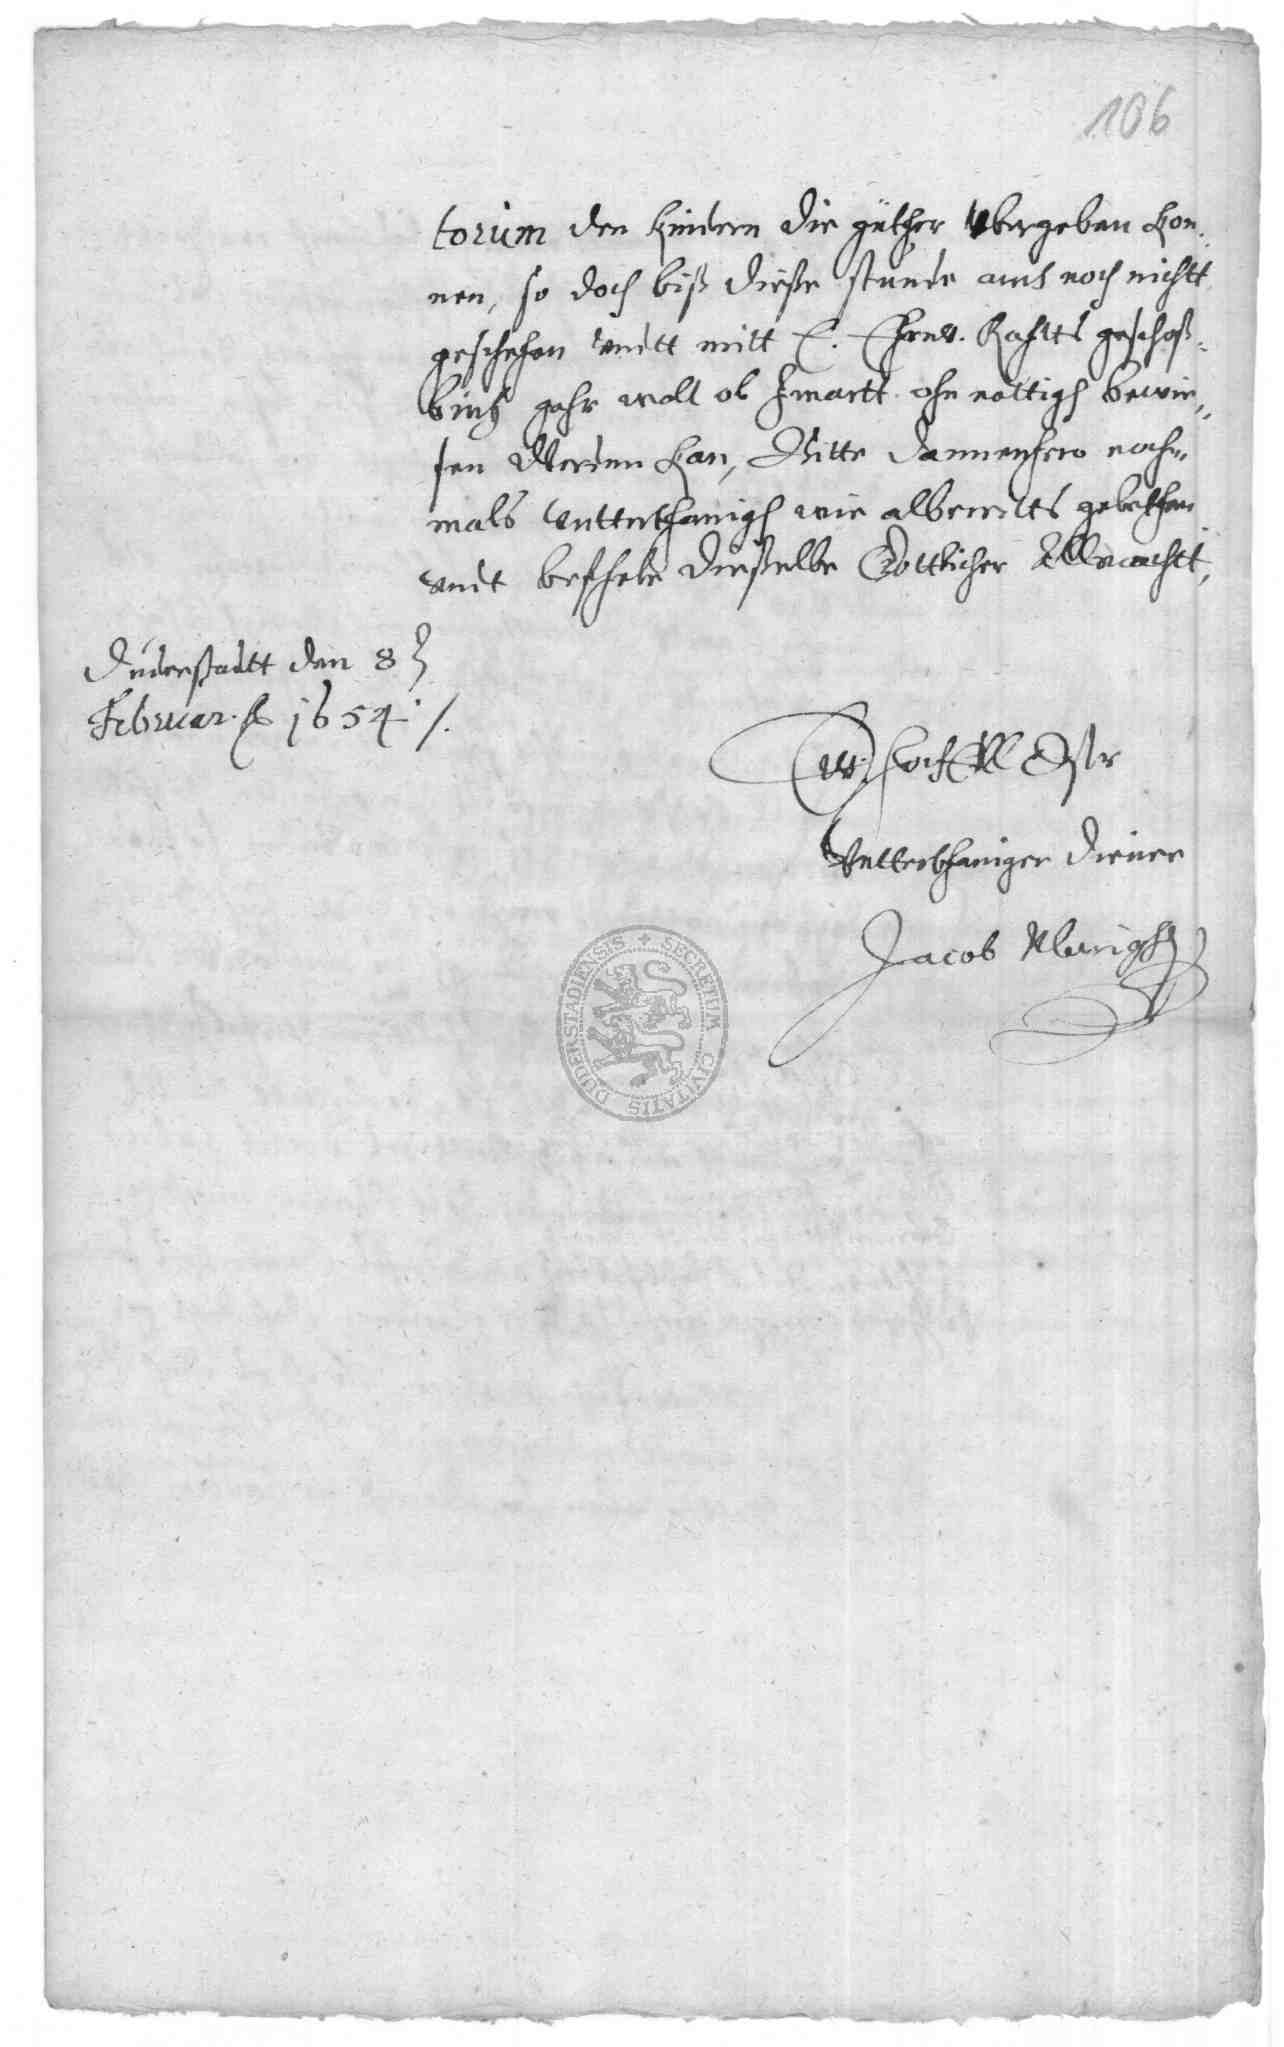 106
torum den Kindern die güther Vbergeben kon„
nen, so doch biß dieße stunde auch noch nichtt
geschehen Vndtt mitt E. Ehrnv. Rahtts geschoß„
buch gahr woll ob Jmantt ohn nottigh bewie„
sen Werden kan, Bitte dannenhero noch„
mals Vntterthanigh wie albereitts gebethen
Vndt befhele dieselbe Gottlicher Allmachtt,
Duderstadtt den 8
Februar. A 1654 ./.
Ew. HochE
Vntterthaniger Diener
Jacob
SECRETUM CIVITATIS DUDERSTADIENSIS